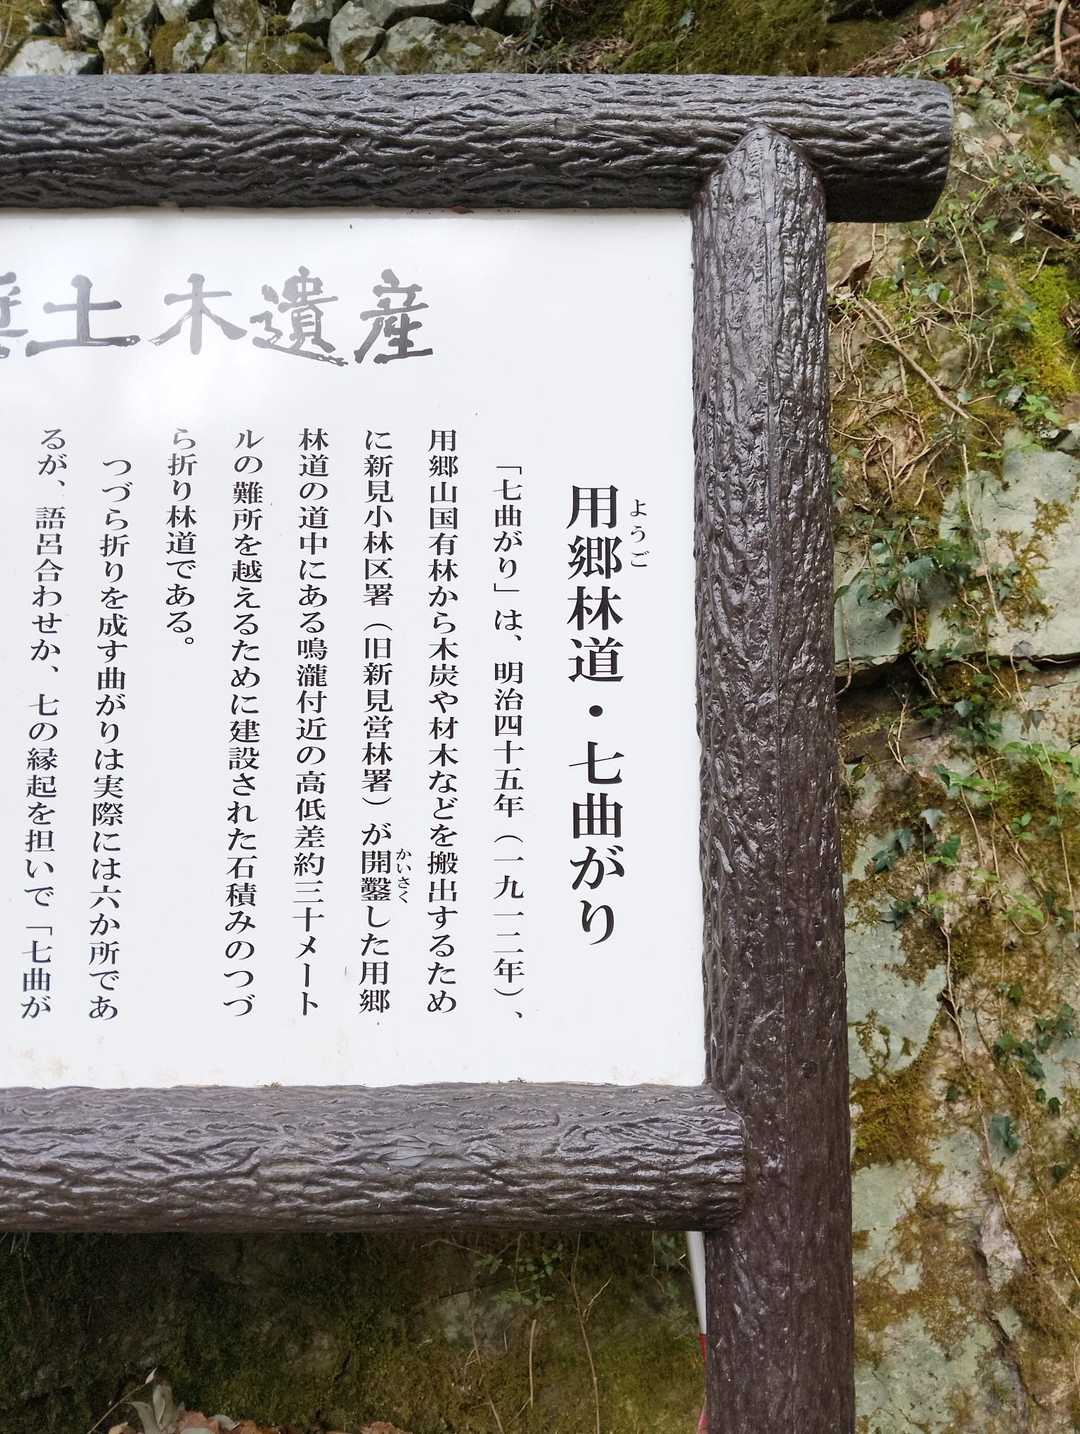 土木遺産
用郷林道・七曲がり
ようご
「七曲がり」は、明治四十五年（一九一二年）、
用郷山国有林から木炭や材木などを搬出するため
に新見小林区署（旧新見営林署）が開鑿した用郷
かいさく
林道の道中にある鳴瀧付近の高低差約三十メート
ルの難所を越えるために建設された石積みのつづ
ら折り林道である。
つづら折りを成す曲がりは実際には六か所であ
るが、語呂合わせか、七の縁起を担いで「七曲が